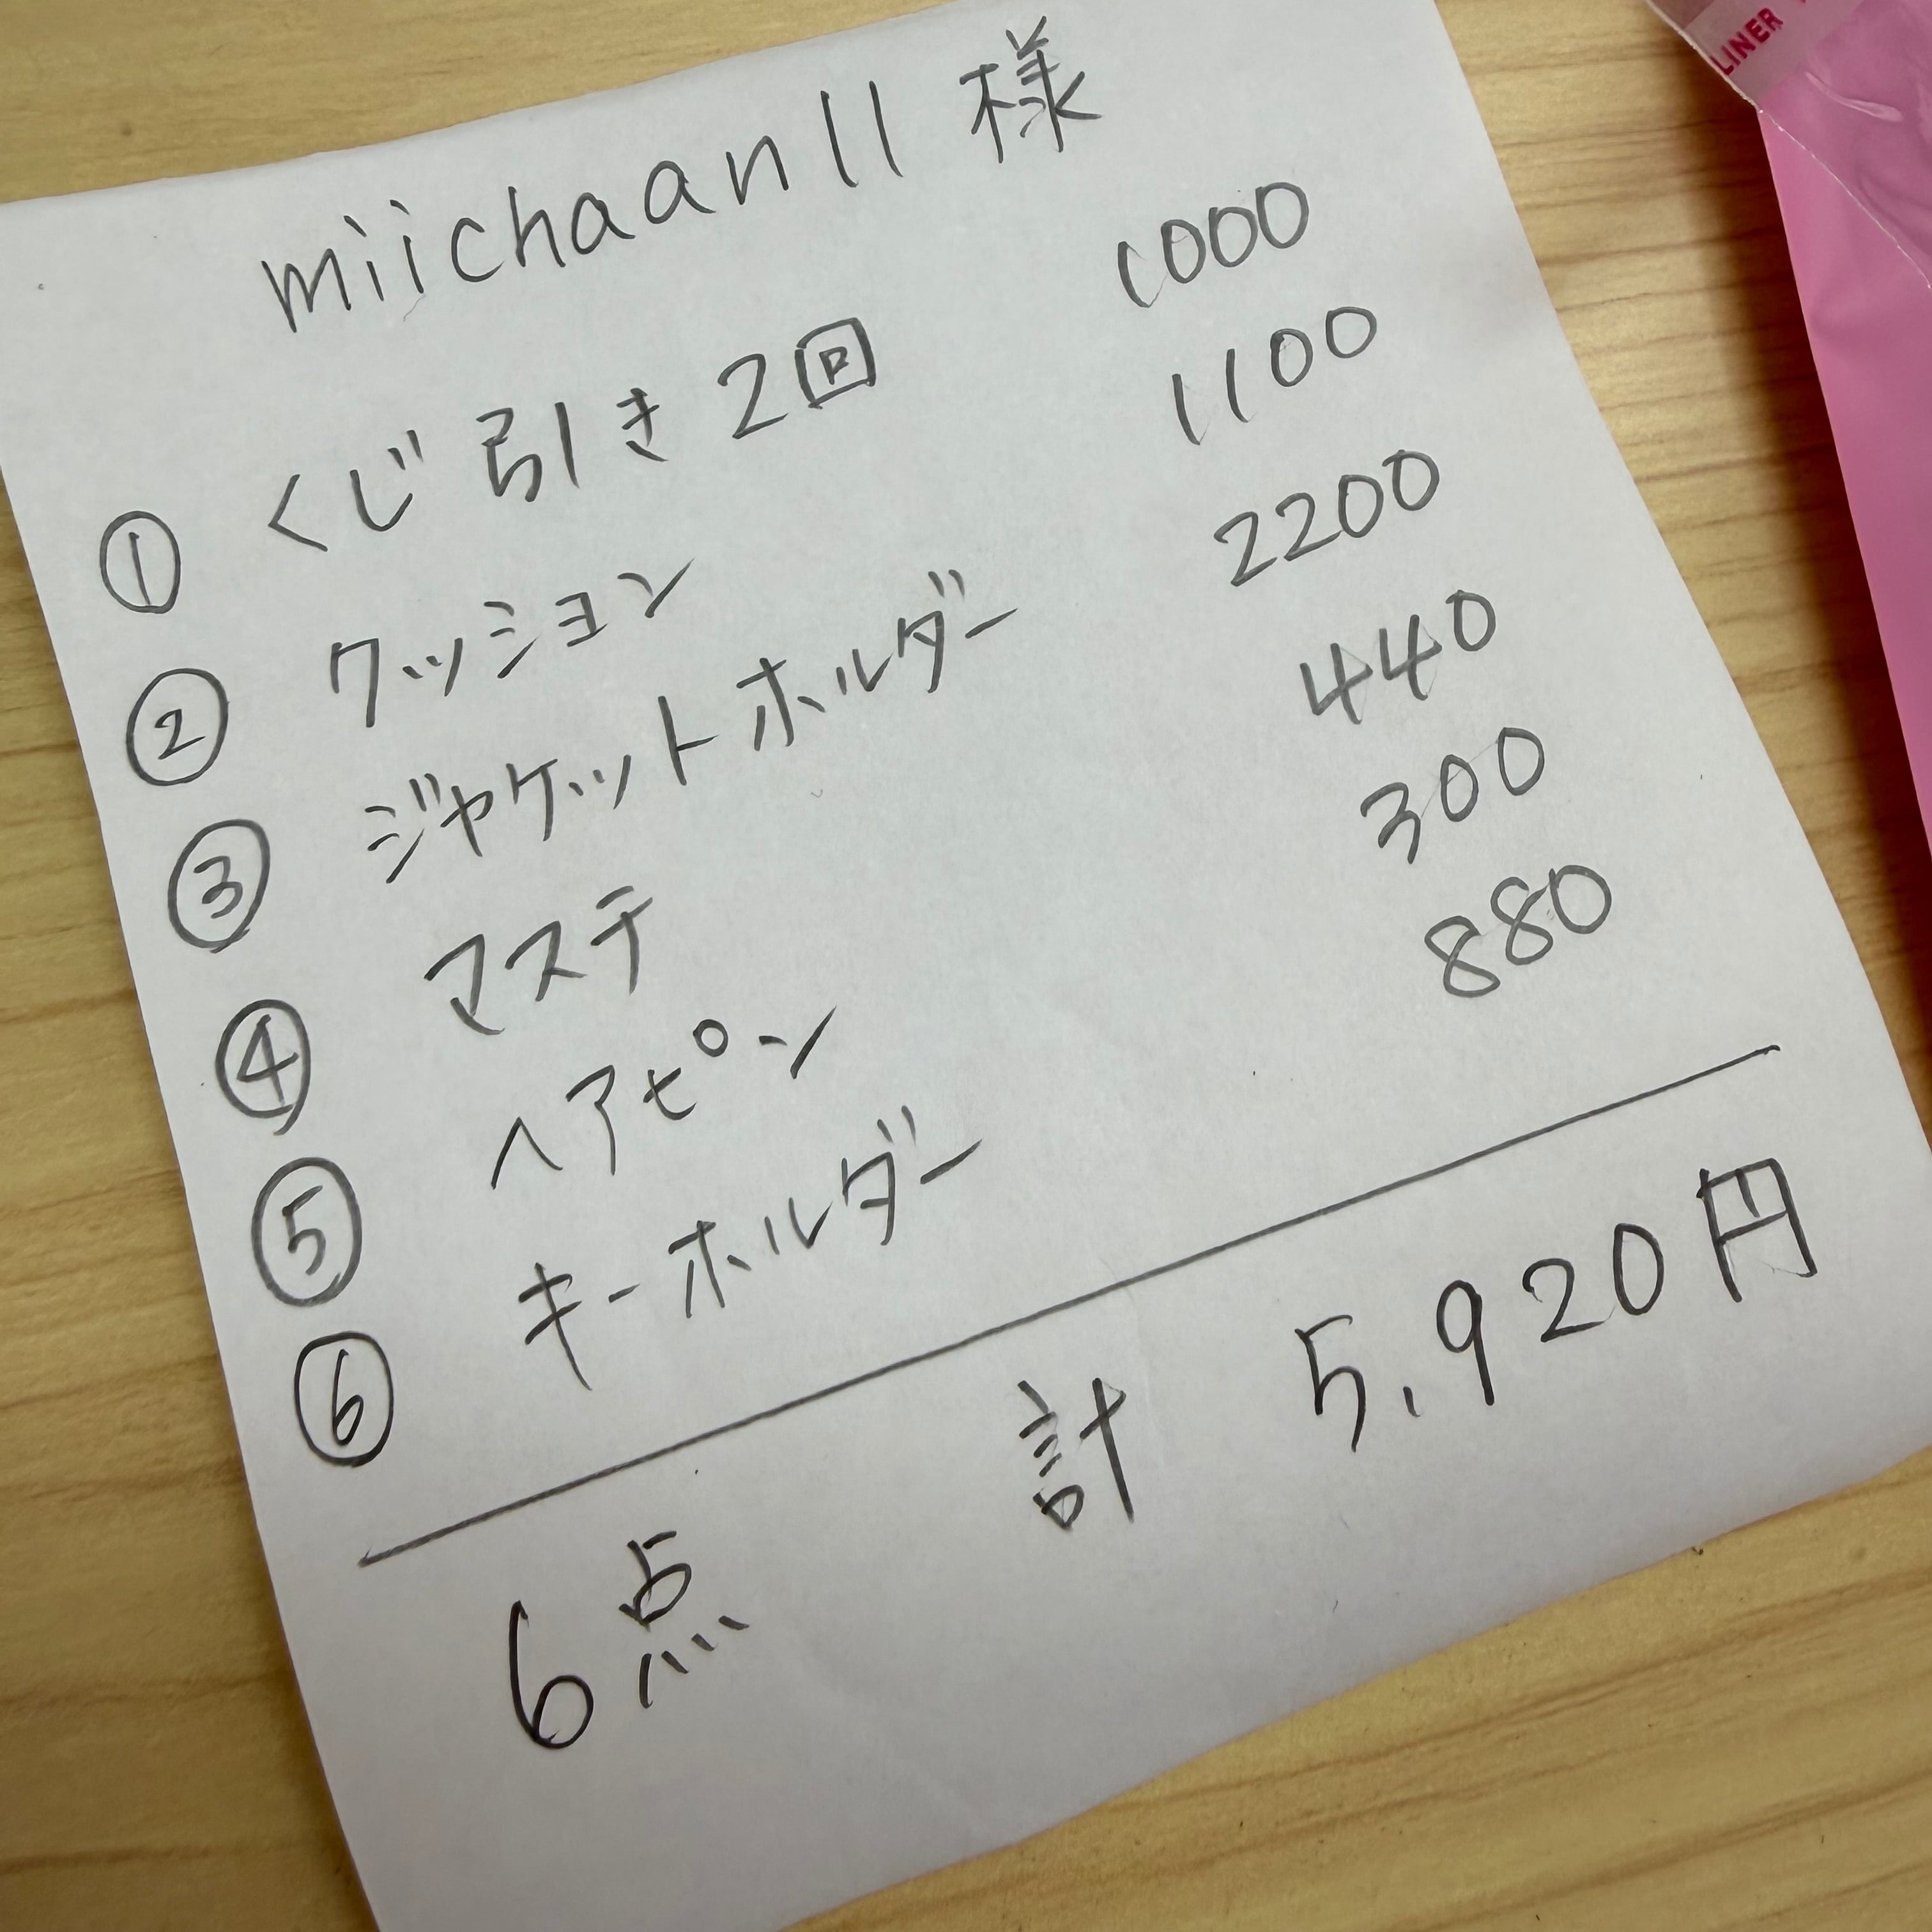 miichaan11 様
① くじ引き 2回 1000
② クッション 1100
③ ジャケットホルダー 2200
④ マステ 440
⑤ ヘアピン 300
⑥ キーホルダー 880
6点 計 5,920円
LINER